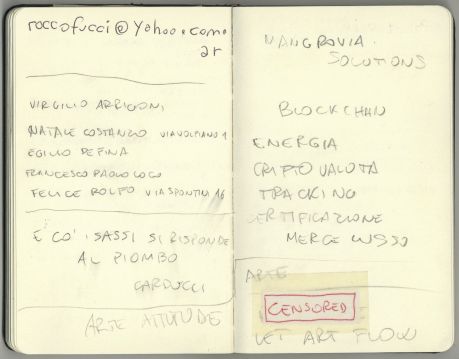 roccofucci@yahoo.com.
ar
VIRGILIO ARRIGONI
NATALE COSTANZO VIA VOLPIANO 1
EGILIO DEFINA
FRANCESCO PAOLO LOCO
FELICE ROLFO VIA SPONTINI 16
E CO' I SASSI SI RISPONDE
AL PIOMBO
CARDUCCI
ARTE ATTITUDE
MANGROVIA
SOLUTIONS
BLOCKCHAN
ENERGIA
CRIPTOVALUTA
TRACKING
CERTIFICAZIONE
MERCE LUSSO
ARTE
CENSORED
LET ART FLOW